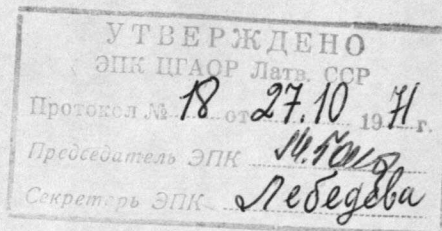 УТВЕРЖДЕНО
ЭПК ЦГАОР Латв. ССР
Протокол № 18 от 27.10 1971 г.
Председатель ЭПК
Секретарь ЭПК Лебедева